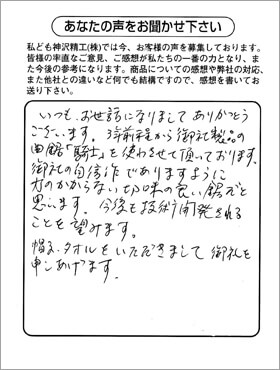 あなたの声をお聞かせ下さい
私ども神沢精工(株)では今、お客様の声を募集しております。
皆様の率直なご意見、ご感想が私たちの一番の力となり、ま
た今後の参考になります。商品についての感想や弊社の対応、
また他社との違いなど何でも結構ですので、感想を書いてお
送り下さい。
いつも、お世話になりましてありがとう
ございます。3年前程から御社製品の
曲鋸「騎士」を使わせて頂いております。
御社の自信作でありますように
力のかからない切味の良い鋸だと
思います。今後も技術開発される
ことを望みます。
帽子、タオルをいただきまして御礼を
申しあげます。